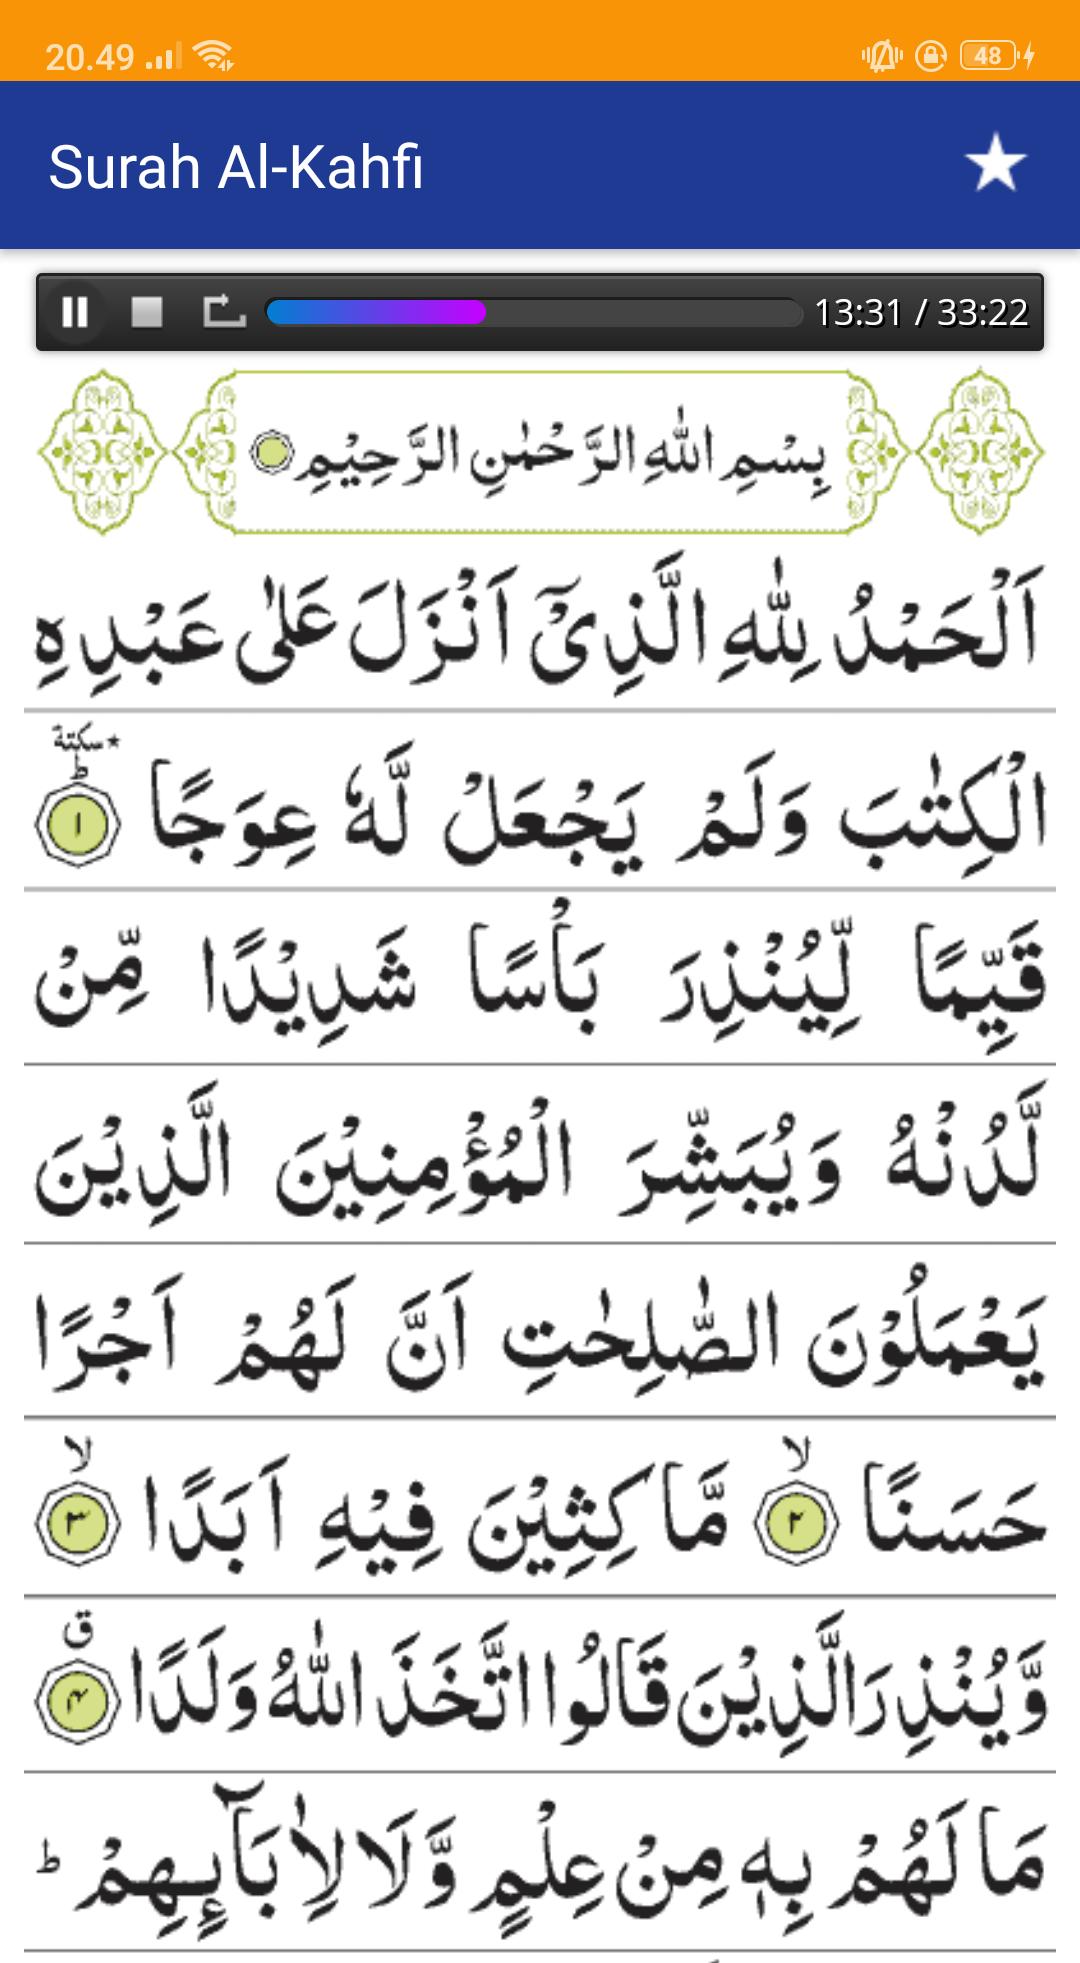 20.49
48
Surah Al-Kahfi
13:31 / 33:22
بِسْمِ اللّٰهِ الرَّحْمٰنِ الرَّحِيْمِ
اَلْحَمْدُ لِلّٰهِ الَّذِىْٓ اَنْزَلَ عَلٰى عَبْدِهِ
الْكِتٰبَ وَلَمْ يَجْعَلْ لَّهٗ عِوَجًا ؕ ٭سكتة ۱
قَيِّمًا لِّيُنْذِرَ بَاْسًا شَدِيْدًا مِّنْ
لَّدُنْهُ وَيُبَشِّرَ الْمُؤْمِنِيْنَ الَّذِيْنَ
يَعْمَلُوْنَ الصّٰلِحٰتِ اَنَّ لَهُمْ اَجْرًا
حَسَنًا ۙ ۲ مَّاكِثِيْنَ فِيْهِ اَبَدًا ۙ ۳
وَّيُنْذِرَ الَّذِيْنَ قَالُوا اتَّخَذَ اللّٰهُ وَلَدًا ق ۴
مَا لَهُمْ بِهٖ مِنْ عِلْمٍ وَّلَا لِاٰبَآٮِٕهِمْ ؕ